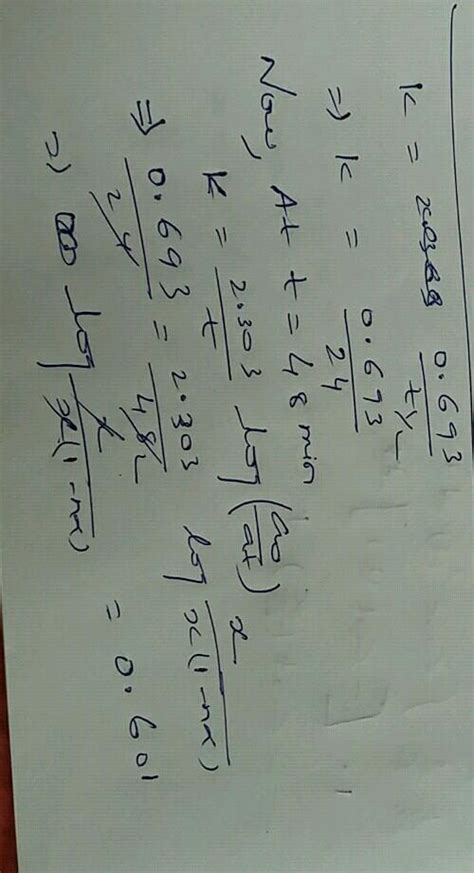 K = 0.693 / t½
=> K = 0.693 / 24
Now, At t = 48 min
K = 2.303 / t log (a0 / at)
=> 0.693 / 24 = 2.303 / 48 2 log x / x(1-nα)
=> log x / x(1-nα) = 0.601